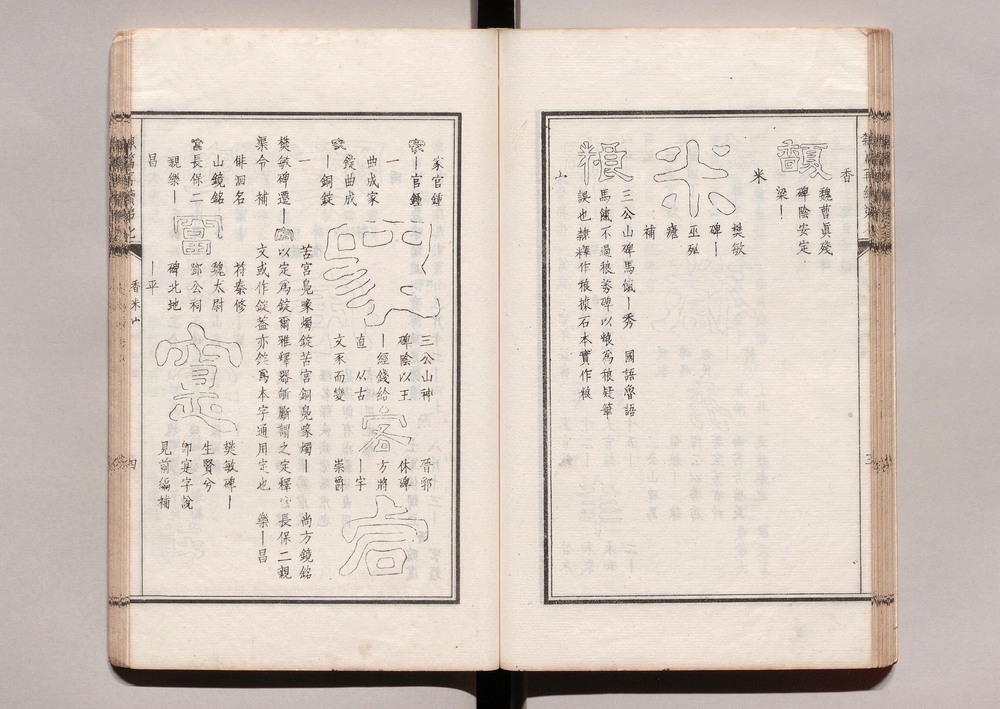 香
魏曹真殘
碑陰安定
梁｜
米
樊敏
碑｜
巫殂
瘧
補
三公山碑馬餼｜秀　國語魯語
馬餼不過稂莠碑以糧為稂疑筆
誤也隸釋作稂據石本實作糧
山
家官鍾
｜官鍾
一
曲成家
錠曲成
｜銅錠
三公山神
碑陰以王
｜經錢給
直　从古
文豕而變
晉郛
休碑
方將
｜字
崇爵
一　苦宮鳧喙燭錠苦宮銅鳧喙燭｜　尚方鏡銘
以定為錠爾雅釋器斪斸謂之定釋
長保二親
樊敏碑遷｜
文或作錠蓋亦從為本字通用定也　樂｜昌
渠令　補
俳洄名
山鏡銘
長保二
親樂｜
昌
苻秦修
魏太尉
鄧公祠
碑北地
｜平
樊敏碑｜
生賢兮
即寔字說
見前編補
香米山
四